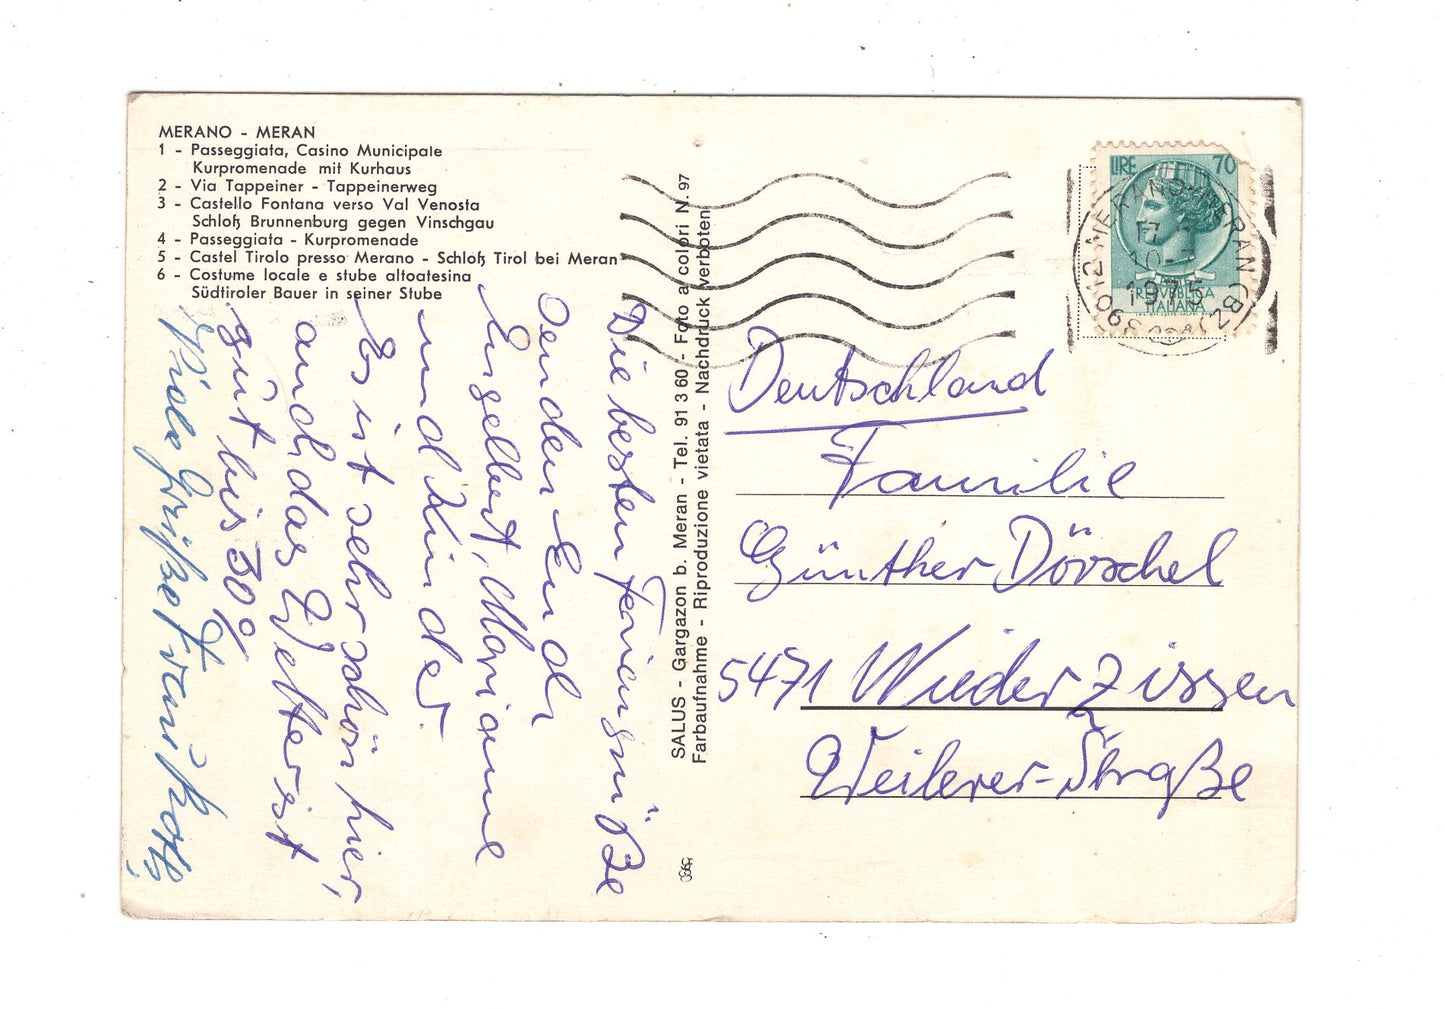 MERANO - MERAN
1 - Passeggiata, Casino Municipale
Kurpromenade mit Kurhaus
2 - Via Tappeiner - Tappeinerweg
3 - Castello Fontana verso Val Venosta
Schloß Brunnenburg gegen Vinschgau
4 - Passeggiata - Kurpromenade
5 - Castel Tirolo presso Merano - Schloß Tirol bei Meran
6 - Costume locale e stube altoatesina
Südtiroler Bauer in seiner Stube
Die besten Feriengrüße
senden Euch
Engelbert, Marianne
und Kinder.
Es ist sehr schön hier,
auch das Wetter ist
gut bis 30%
Viele Grüße
SALUS - Gargazon b. Meran - Tel. 91 3 60 - Foto a colori N. 97
Farbaufnahme - Riproduzione vietata - Nachdruck verboten
LIRE 70
REPUBBLICA
ITALIANA
39012 MERANO-MERAN (BZ)
17
1975
Deutschland
Familie
Günther Dörschel
5471 Niederzissen
Weilerer-Straße